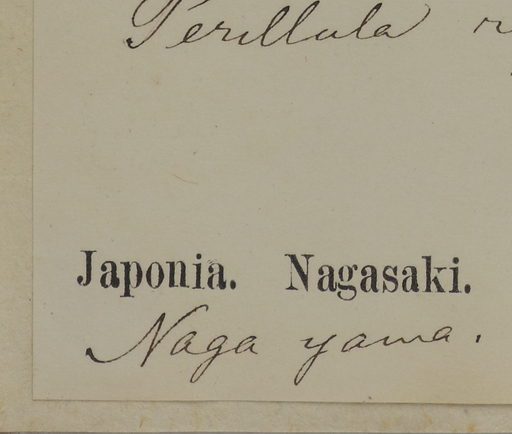 Perillula
Japonia. Nagasaki.
Naga yama.